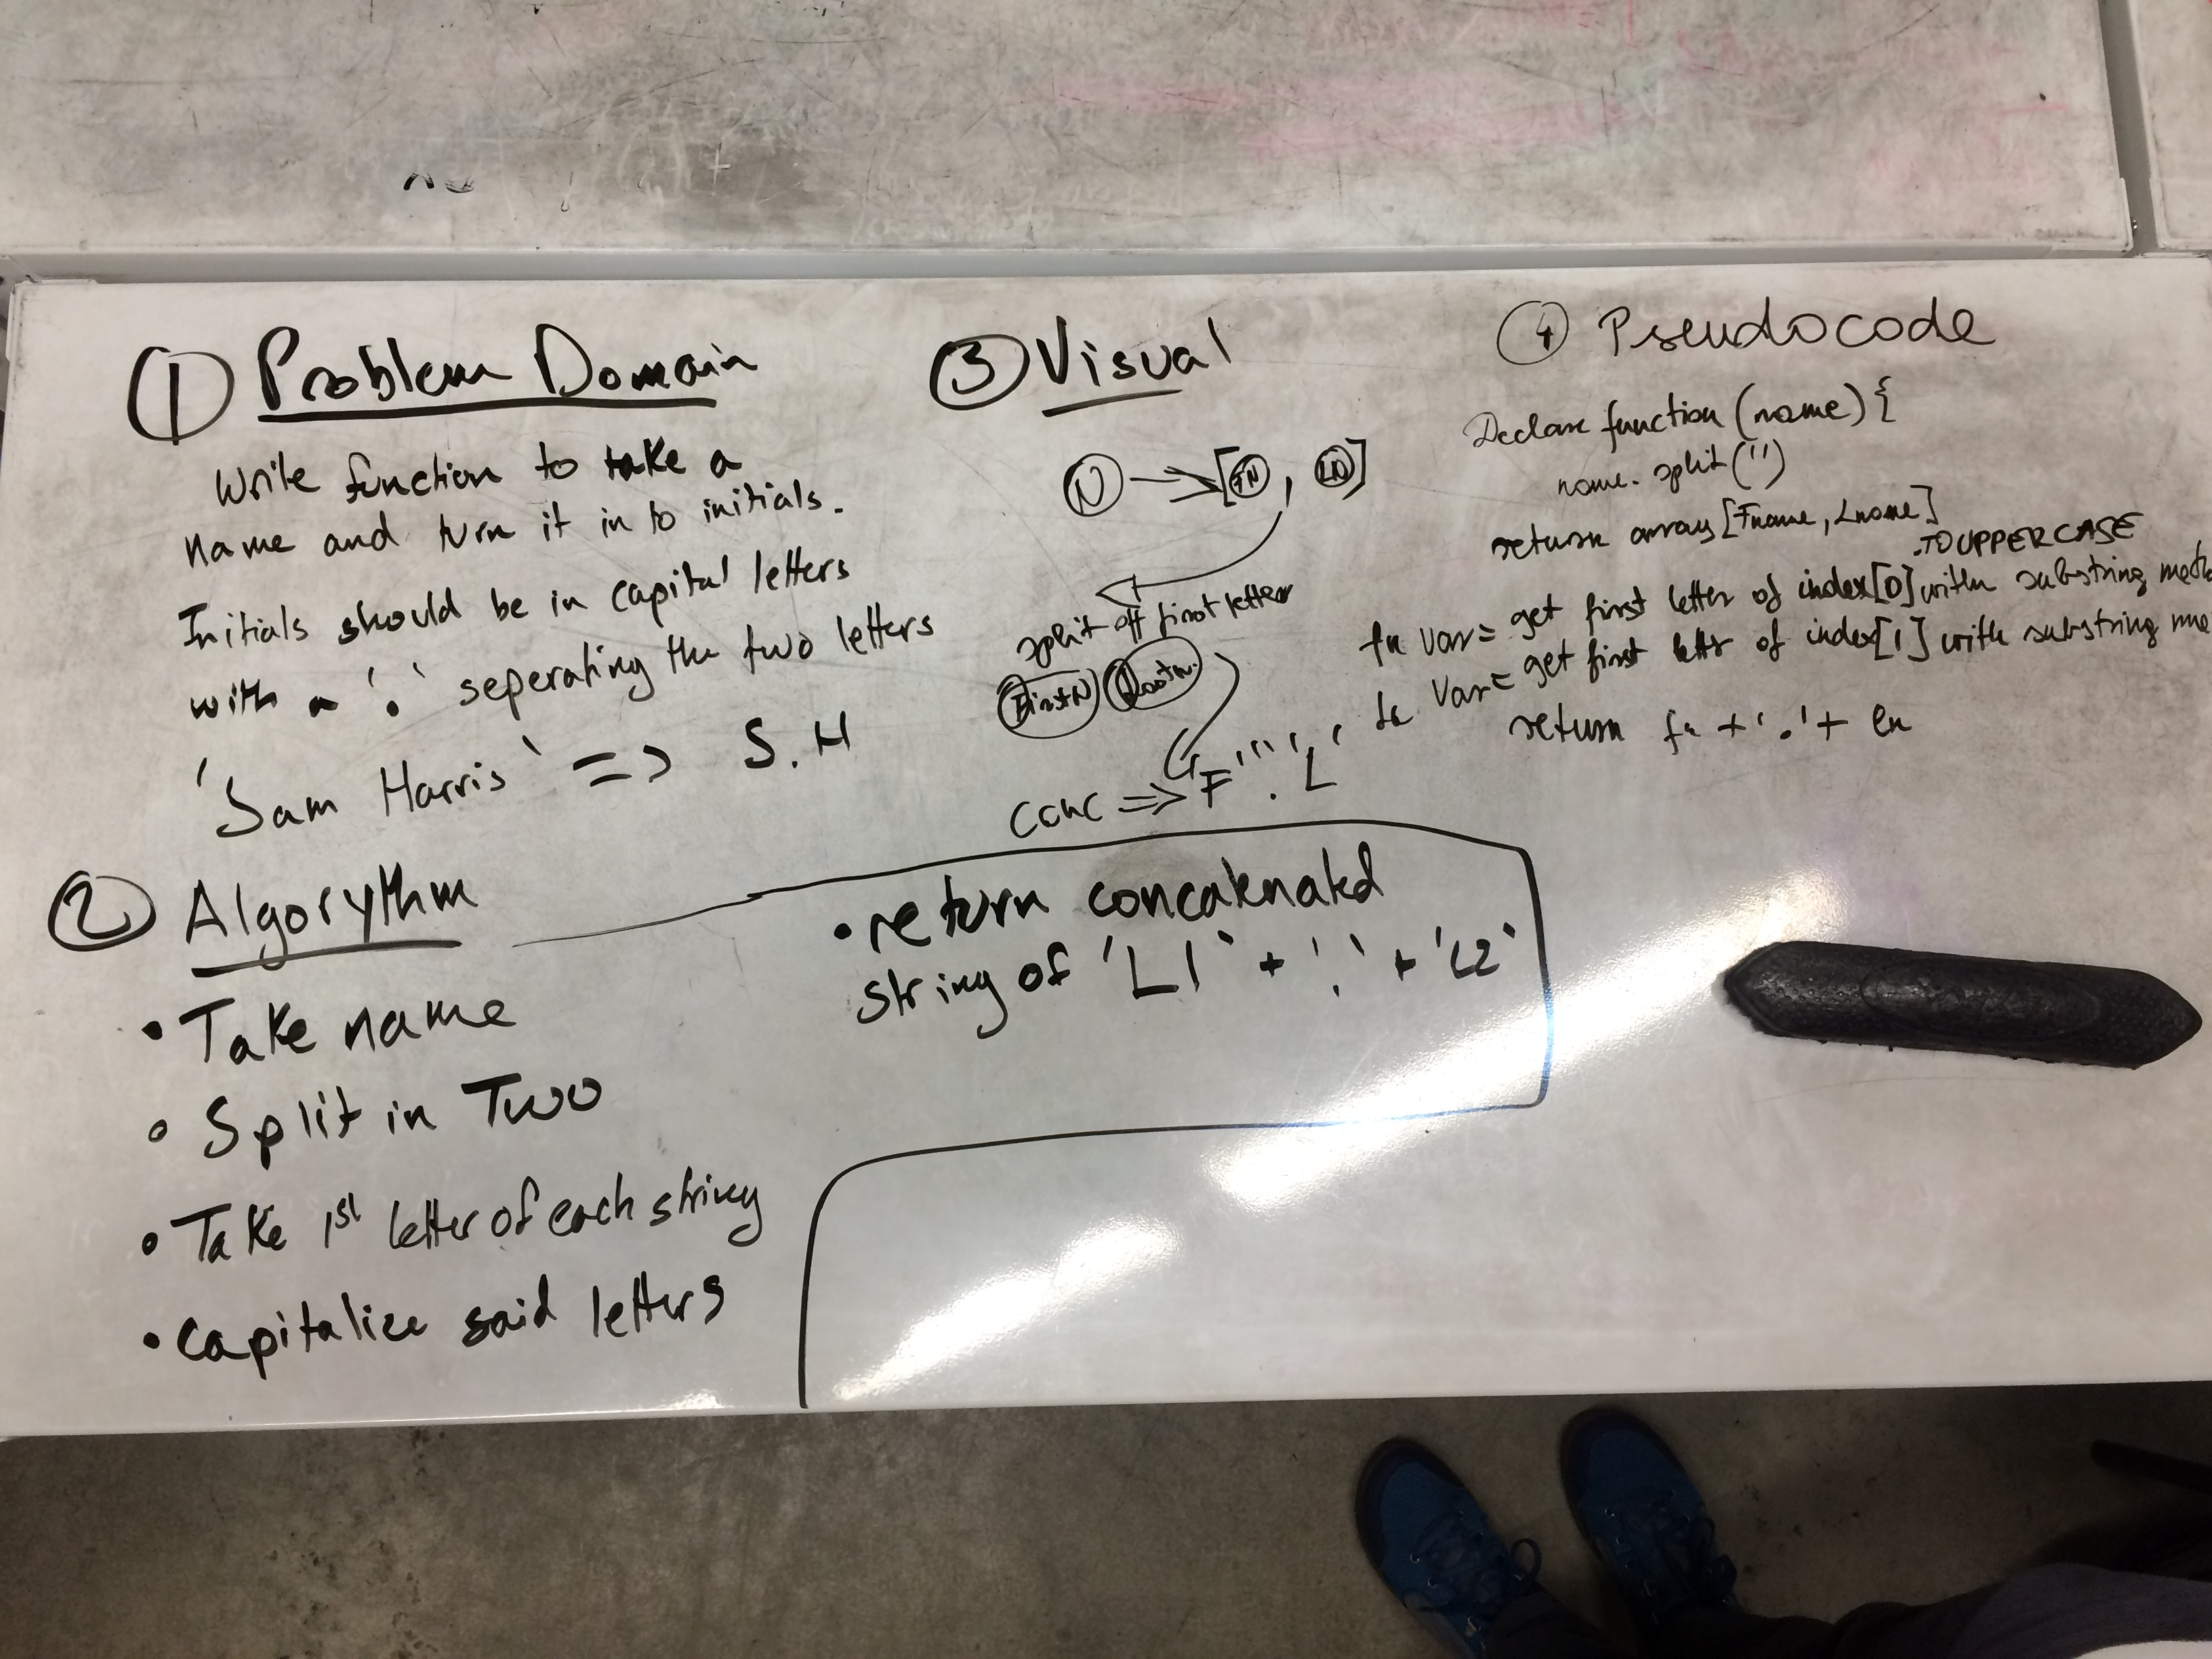 ① Problem Domain
Write function to take a
name and turn it in to initials.
Initials should be in capital letters
with a '.' seperating the two letters
'Sam Harris' => S.H
② Algorythm
• Take name
• Split in Two
• Take 1st letter of each string
• capitalize said letters
• return concatenated
string of 'L1' + '.' + 'L2'
③ Visual
N → [FN, LN]
split off first letter
conc => 'F' '.' 'L'
④ Pseudocode
Declare function (name) {
name. split('')
return array [Fname, Lname]
.TOUPPERCASE
fn var = get first letter of index[0] with substring
ln var = get first lettr of index[1] with substring
return fn + '.' + ln